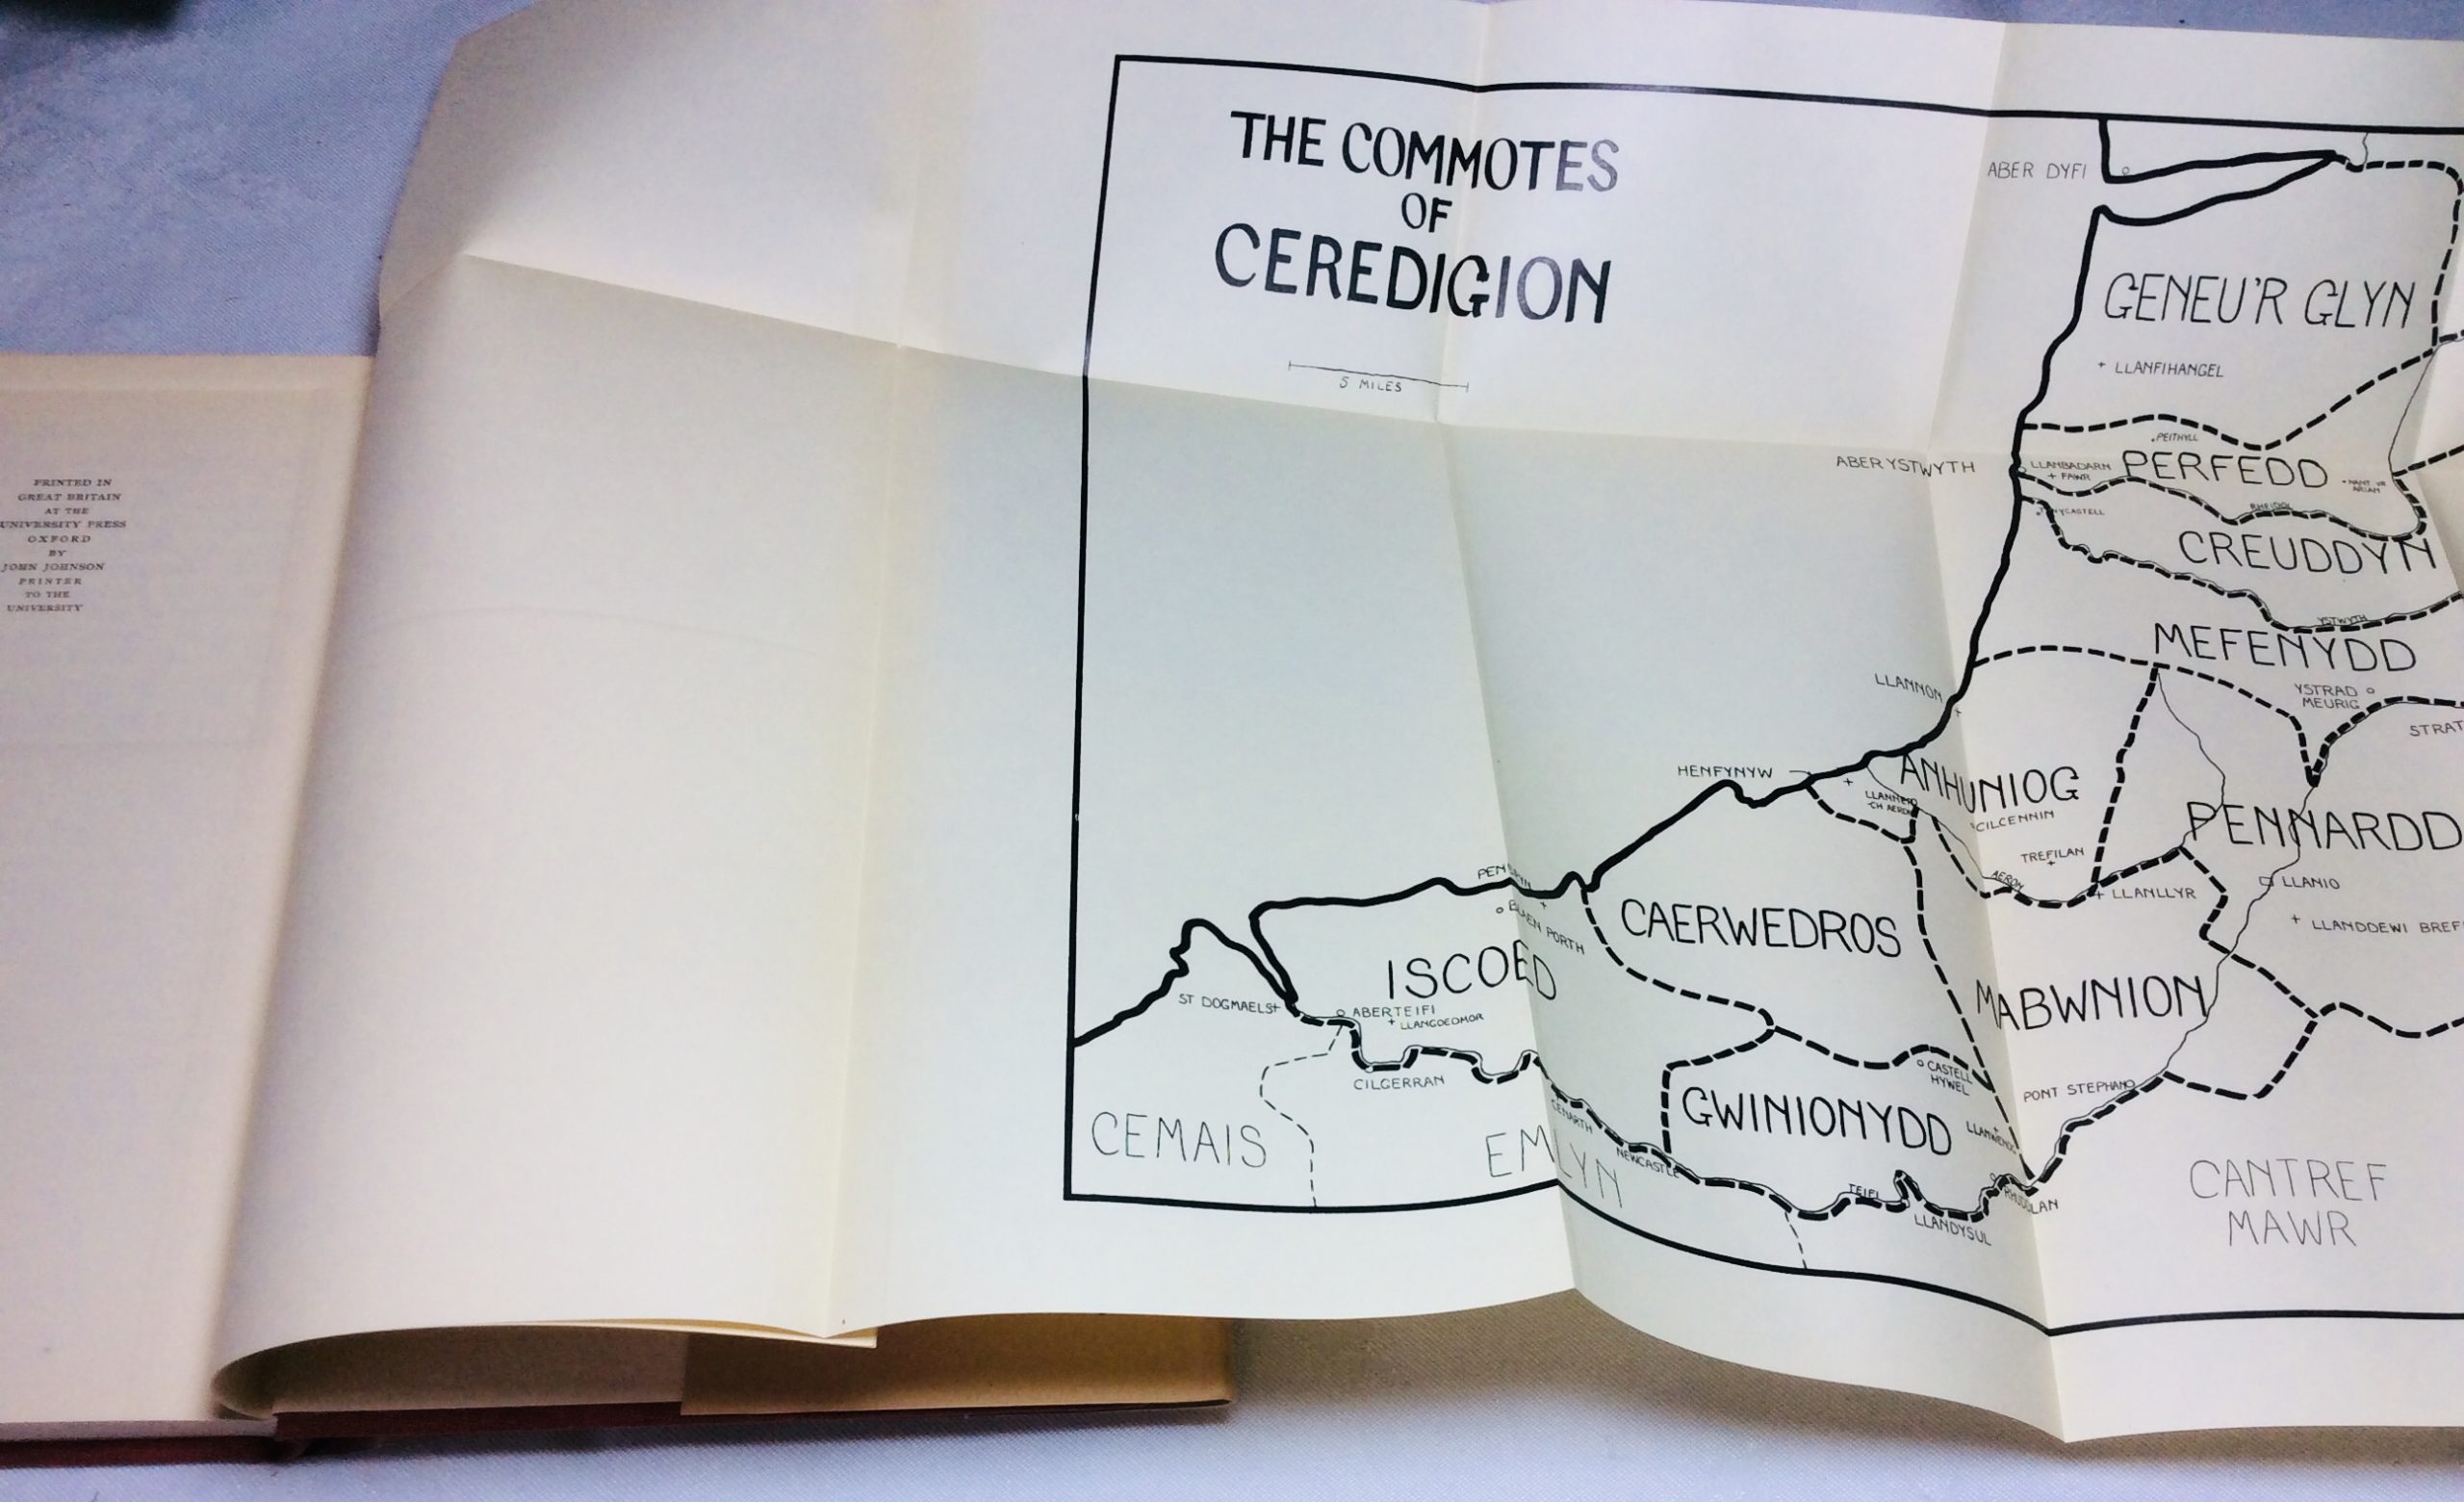 PRINTED IN
GREAT BRITAIN
AT THE
UNIVERSITY PRESS
OXFORD
BY
JOHN JOHNSON
PRINTER
TO THE
UNIVERSITY
THE COMMOTES
OF
CEREDIGION
5 MILES
ABER DYFI
GENEU'R GLYN
LLANFIHANGEL
PEITHYLL
ABERYSTWYTH
LLANBADARN
FAWR
PERFEDD
NANT YR
ARIAN
RHEIDOL
CREUDDYN
YSTWYTH
MEFENYDD
LLANNON
YSTRAD
MEURIG
STRAT
HENFYNYW
ANHUNIOG
LLANNER
CH AERON
CILCENNIN
PENNARDD
TREFILAN
AERON
LLANLLYR
LLANIO
LLANDDEWI BREF
PENBRYN
BLAEN PORTH
CAERWEDROS
ISCOED
MABWNION
ST DOGMAELS
ABERTEIFI
LLANGOEDMOR
CILGERRAN
CASTELL
HYWEL
PONT STEPHAN
CENARTH
GWINIONYDD
CEMAIS
EMLYN
NEWCASTLE
TEIFI
RHUDDLAN
LLANDYSUL
CANTREF
MAWR